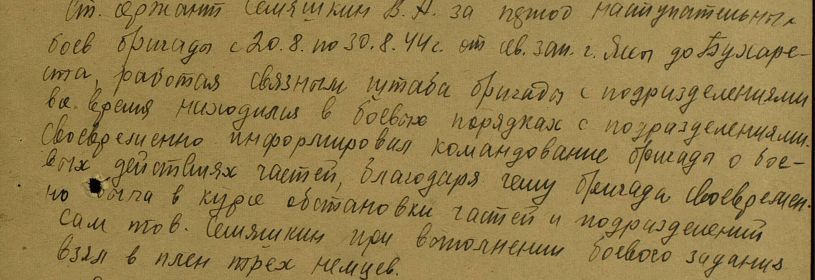 Ст. сержант Семяшкин В. А. за период наступательных
боев бригады с 20.8. по 30.8.44 г. от св. зап. г. Яссы до Бухаре-
ста, работая связным штаба бригады с подразделениями
все время находился в боевых порядках с подразделениями.
Своевременно информировал командование бригады о бое-
вых действиях частей, благодаря чему бригада своевремен-
но была в курсе обстановки частей и подразделений
Сам тов. Семяшкин при выполнении боевого задания
взял в плен трех немцев.